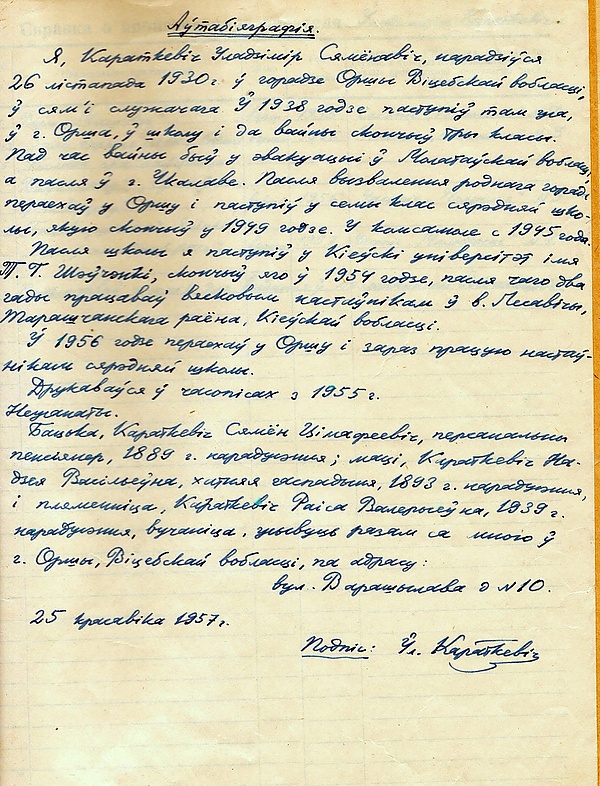 Аўтабіяграфія.
Я, Караткевіч Уладзімір Сямёнавіч, нарадзіўся
26 лістапада 1930 г. ў горадзе Оршы Віцебскай вобласці,
ў сям'і служачага. Ў 1938 годзе паступіў там жа,
ў г. Орша, ў школу і да вайны скончыў тры класы.
Пад час вайны быў у эвакуацыі ў Молатаўскай вобласці,
а пасля ў г. Чкалаве. Пасля вызвалення роднага горада
пераехаў у Оршу і паступіў у семы клас сярэдняй шко-
лы, якую скончыў у 1949 годзе. У комсамоле с 1945 года.
Пасля школы я паступіў у Кіеўскі універсітэт імя
Т. Г. Шэўчэнкі, скончыў яго ў 1954 годзе, пасля чаго два
гады працаваў вясковым настаўнікам ў в. Лесавічы,
Таращчанскага раёна, Кіеўскай вобласці.
Ў 1956 годзе пераехаў у Оршу і зараз працую настаў-
нікам сярэдняй школы.
Друкаваўся ў часопісах з 1955 г.
Нежанаты.
Бацька, Караткевіч Сямён Цімафеевіч, персанальны
пенсіянер, 1889 г. нараджэння; маці, Караткевіч На-
дзея Васільеўна, хатняя гаспадыня, 1893 г. нараджэння,
і пляменніца, Караткевіч Раіса Валерыеўна, 1939 г.
нараджэння, вучаніца, жывуць разам са мною ў
г. Оршы, Віцебскай вобласці, па адрасу:
вул. Варашылава д № 10.
25 красавіка 1957 г.
Подпіс: Ўл. Караткевіч